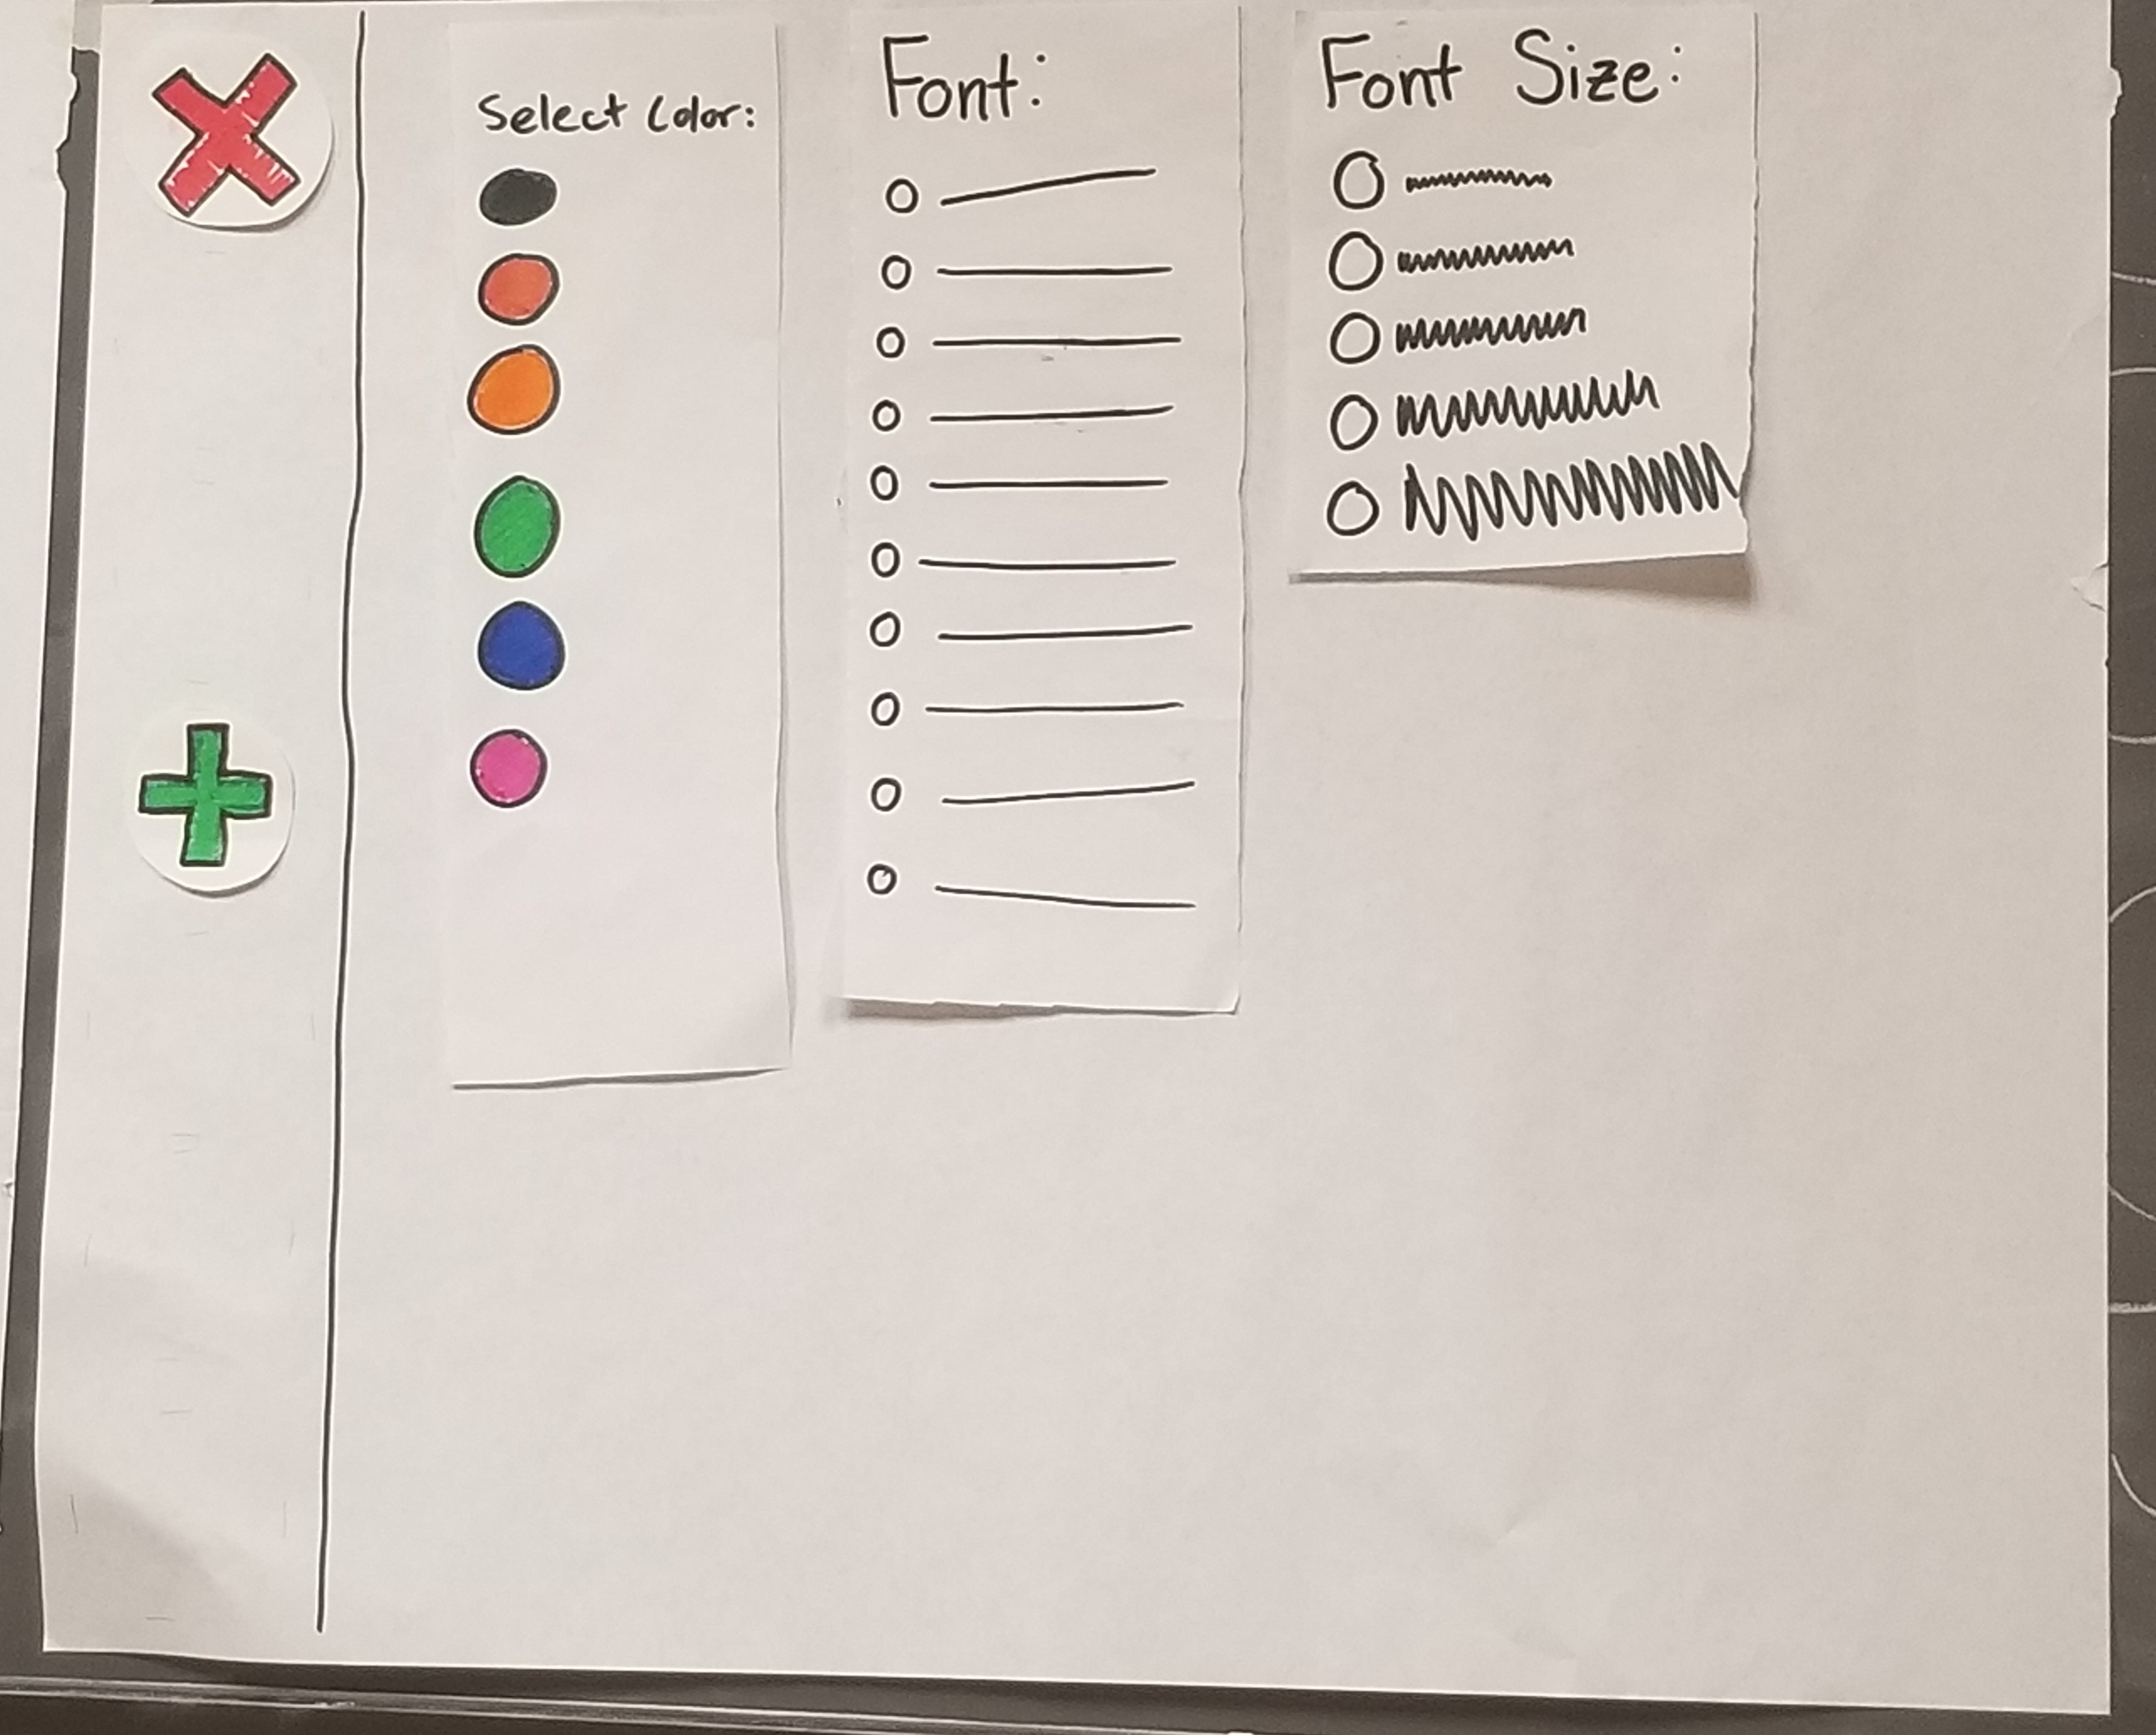 Select Color:
Font:
Font Size: